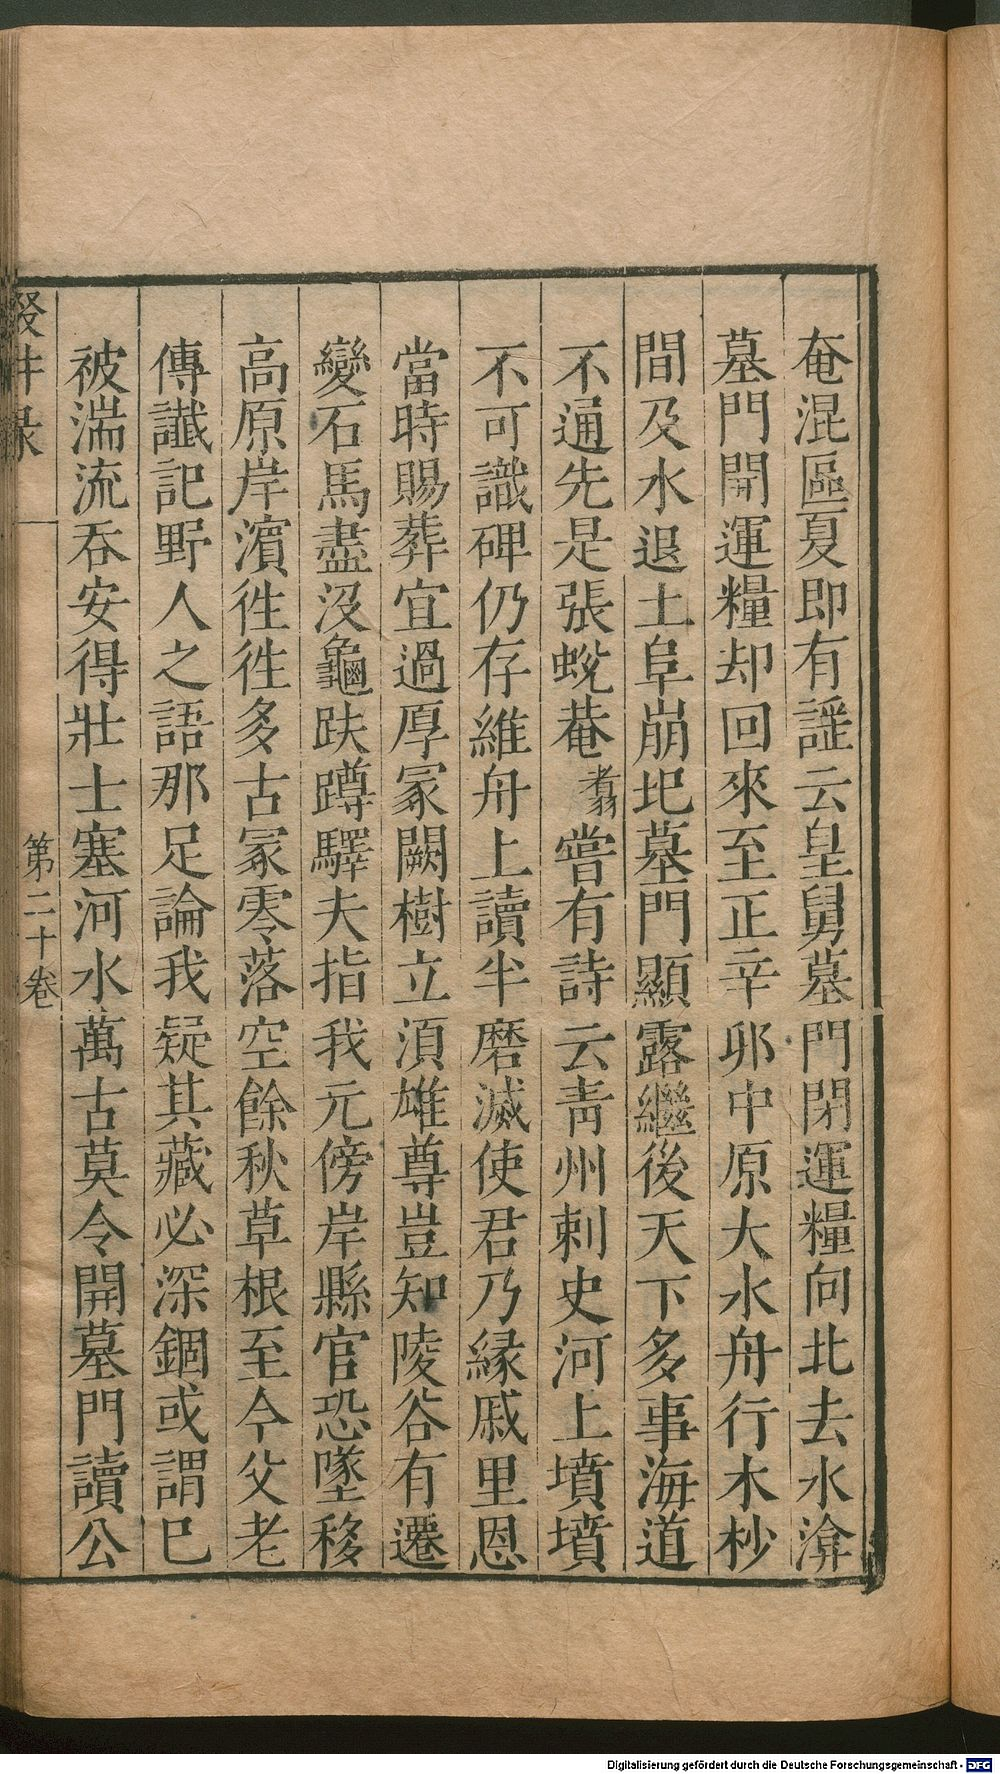 奄混區夏即有謡云皇舅墓門閉運糧向北去水渰
墓門開運糧却回來至正辛夘中原大水舟行木杪
間及水退土阜崩圯墓門顯露繼後天下多事海道
不通先是張蛻菴翥嘗有詩云青州刺史河上墳墳
不可識碑仍存維舟上讀半磨滅使君乃緣戚里恩
當時賜葬宜過厚冢闕樹立湏雄尊豈知陵谷有遷
變石馬盡沒龜趺蹲驛夫指我元傍岸縣官恐墜移
高原岸濵徃徃多古冢零落空餘秋草根至今父老
傳讖記野人之語那足論我疑其藏必深錮或謂巳
被湍流吞安得壯士塞河水萬古莫令開墓門讀公
第二十卷
Digitalisierung gefördert durch die Deutsche Forschungsgemeinschaft - DFG